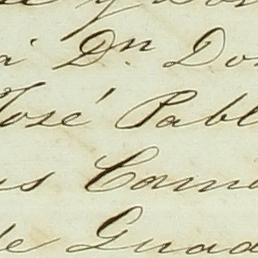 á Dn. Do
José Pabl
us Com
de Guad